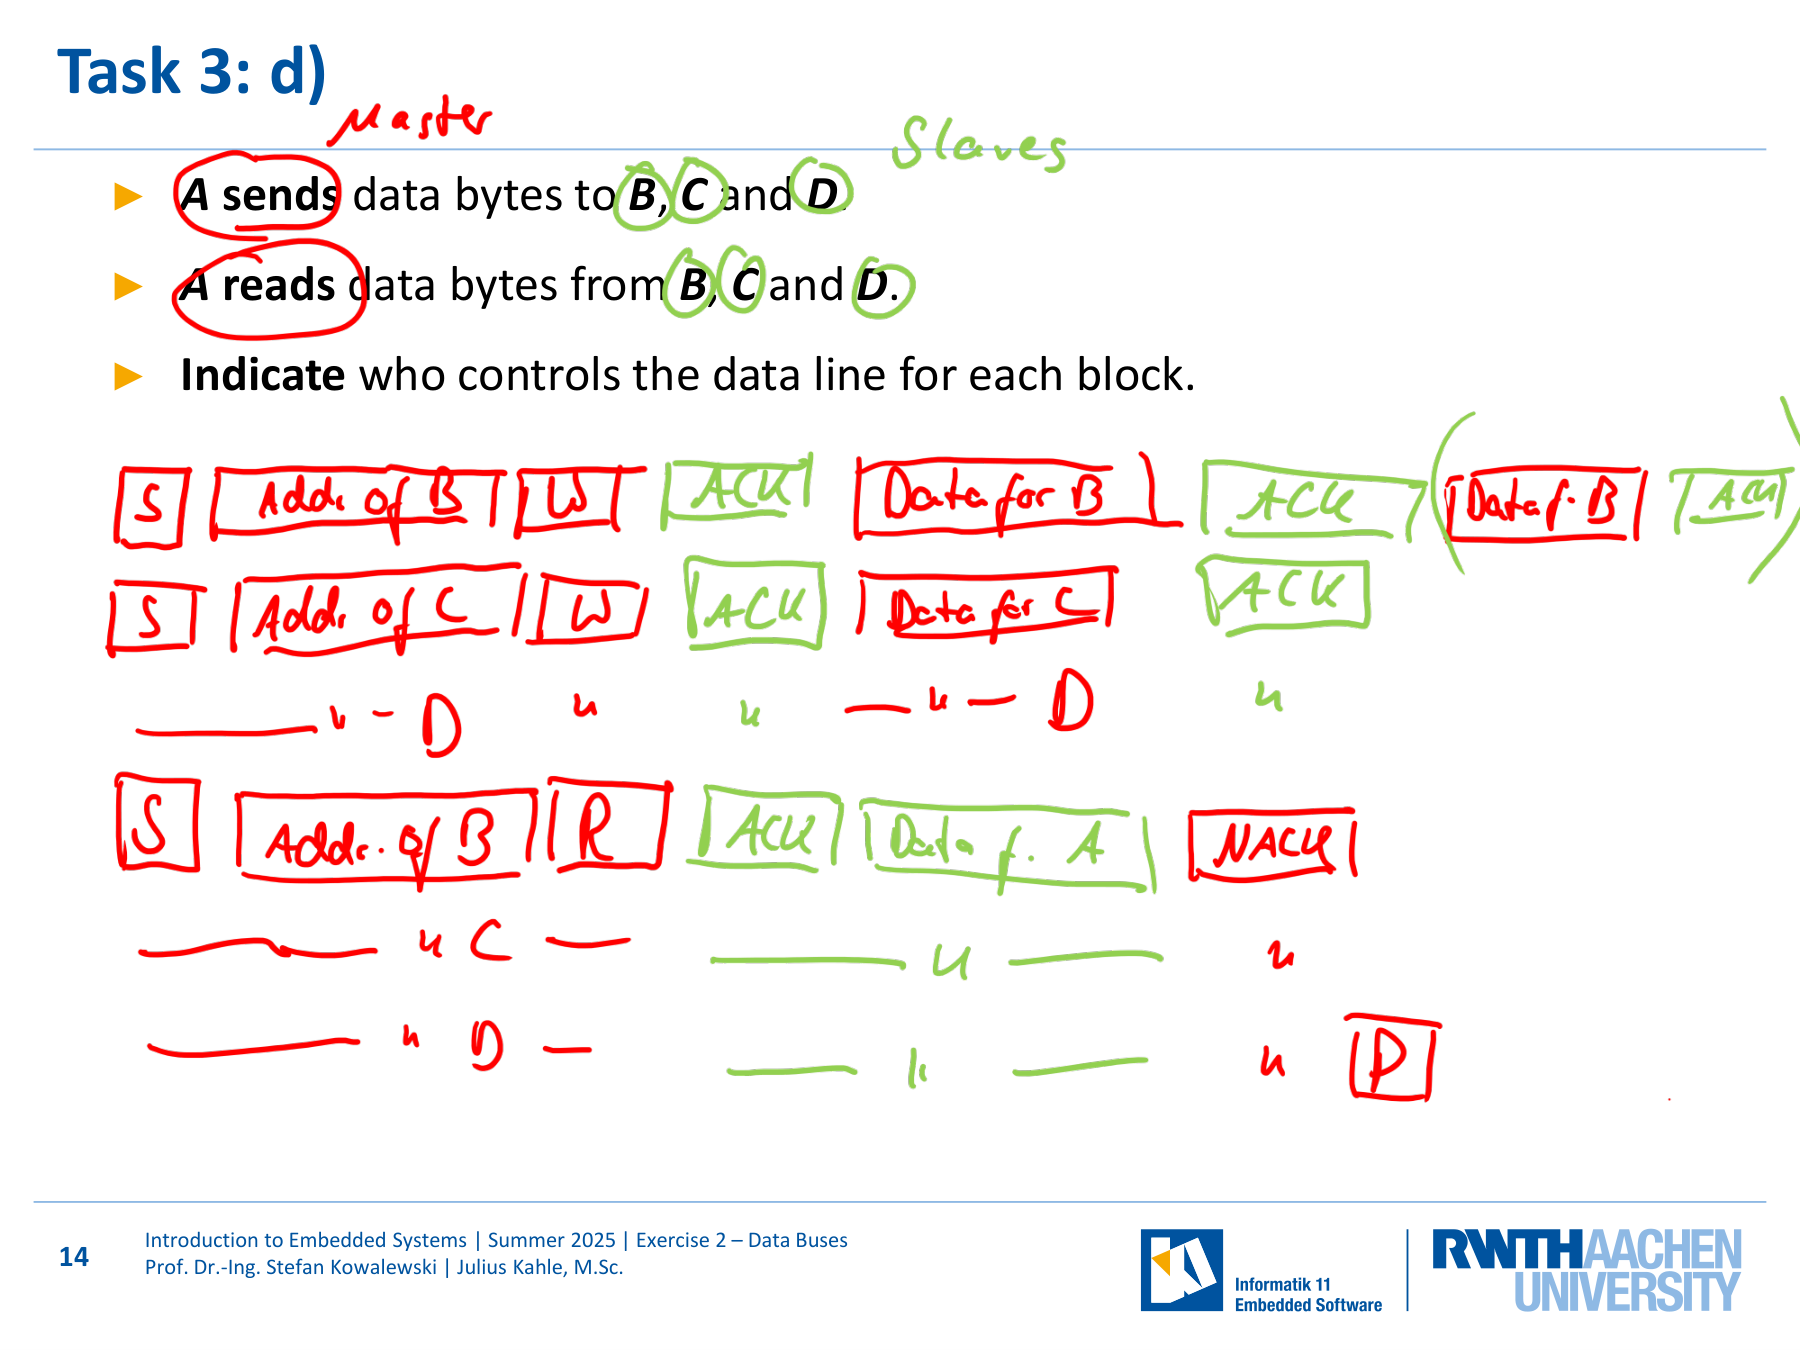 Task 3: d)
Master
Slaves
► A sends data bytes to B, C and D.
► A reads data bytes from B, C and D.
► Indicate who controls the data line for each block.
S Addr. of B W ACK Data for B ACK ( Data f. B ACK )
S Addr. of C W ACK Data for C ACK
— " - D " " — " — D "
S Addr. of B R ACK Data f. A NACK
— " C — — " — "
— " D — — " — " P
14
Introduction to Embedded Systems | Summer 2025 | Exercise 2 – Data Buses
Prof. Dr.-Ing. Stefan Kowalewski | Julius Kahle, M.Sc.
Informatik 11
Embedded Software
RWTHAACHEN
UNIVERSITY